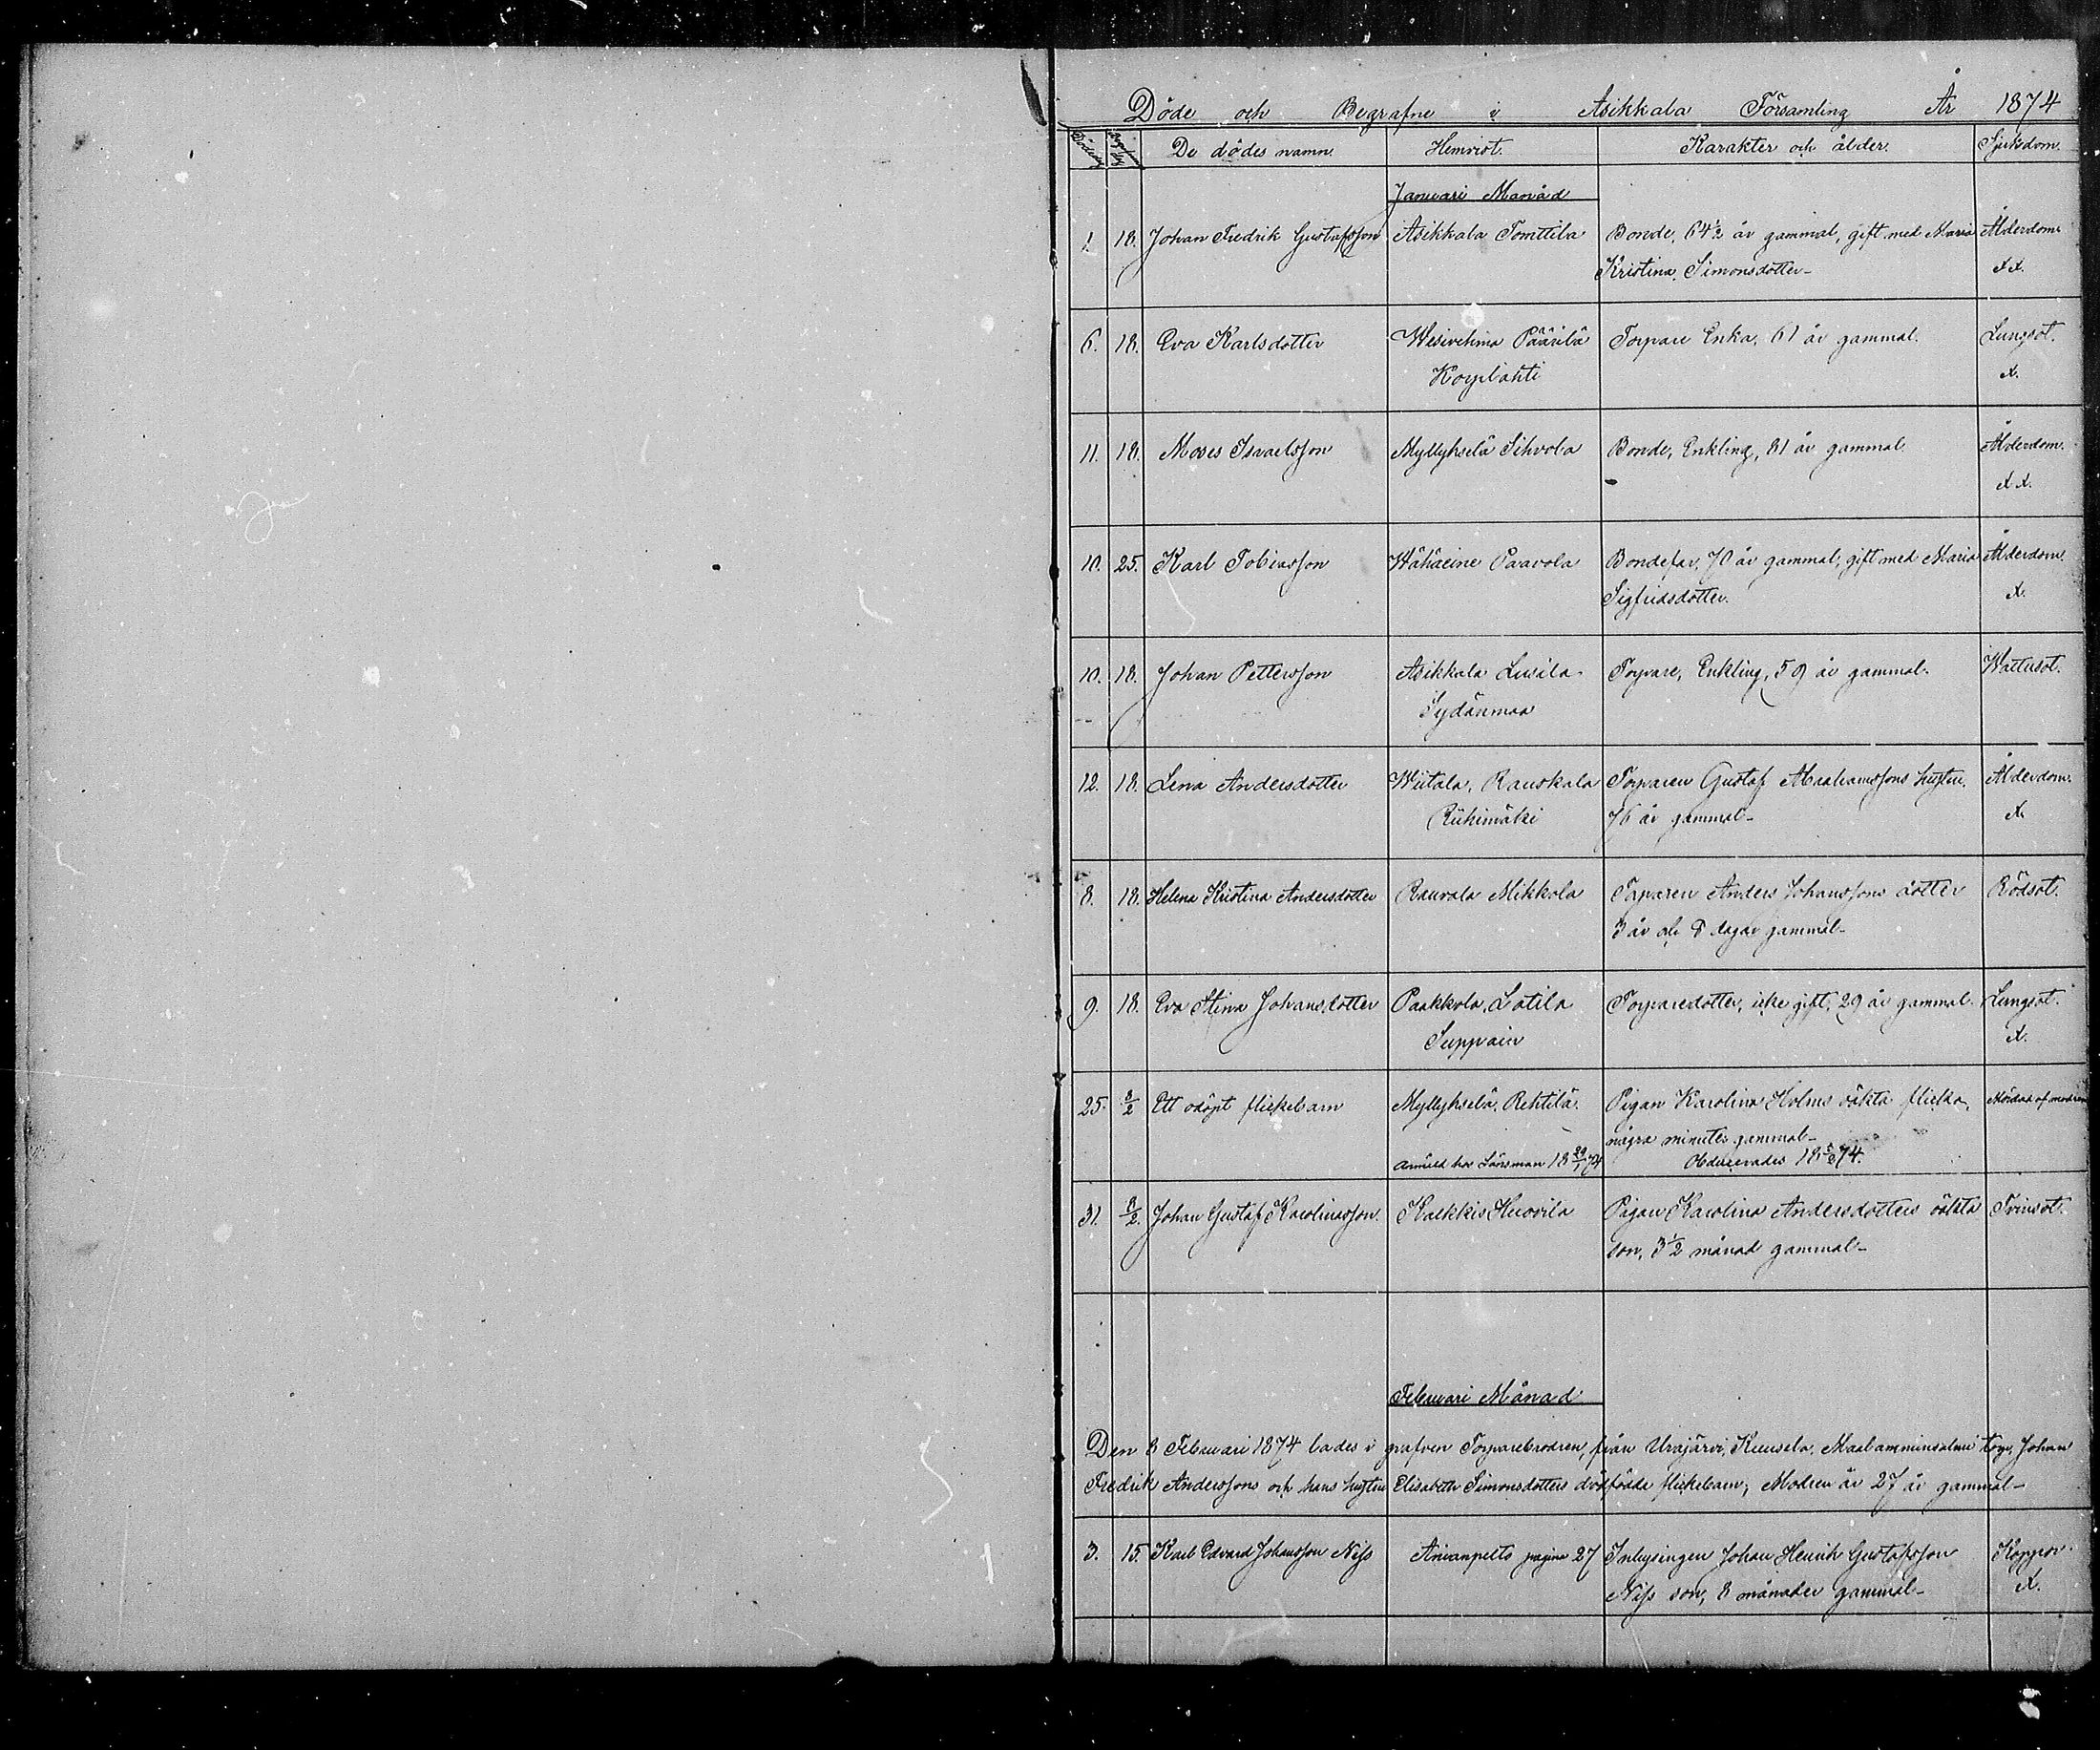 Döde och Begrafne i Asikkala Församling År 1874
De dödes namn. Hemvist. Karakter och ålder. Sjukdom.
Januari Månad
1. 18. Johan Fredrik Gustafsson Asikkala Tomttila Bonde, 64½ år gammal, gift med Maria Ålderdom
Kristina Simonsdotter
6. 18. Eva Karlsdotter Wesivehma Päärilä Torpare Enka, 61 år gammal. Lungsot.
Korpilahti
11. 18. Moses Israelsson Myllykselä Sihvola Bonde, Enkling, 81 år gammal Ålderdom.
10. 25. Karl Tobiasson Wähäeine Paavola Bondefar, 70 år gammal, gift med Maria Ålderdom.
Sigfridsdotter.
10. 18. Johan Pettersson Asikkala Torpare, Enkling, 59 år gammal. Wattusot.
Sydänmaa
12. 18. Lena Andersdotter Wiitala, Rauskala Torparen Gustaf Abrahamssons hustru, Ålderdom.
Riihimäki 76 år gammal
8. 18. Helena Kristina Andersdotter Rauvola Mikkola Torparen Anders Johanssons dotter Rödsot.
3 år och 8 dagar gammal
9. 18. Eva Stina Johansdotter Paakkola, Lotila Torparedotter, icke gift, 29 år gammal. Lungsot.
25. 8/2 Ett odöpt flickebarn Myllykselä, Rehtilä. Pigan Karolina Holms oäkta flicka, Mördad af modren
några minuter gammal
Länsman 18 29/1 74 Obducerades
31. 8/2. Johan Gustaf Karolinasson. Kalkkis Huovila Pigan Karolina Andersdotters oäkta Tvinsot.
son, 3½ månad gammal
Februari Månad
Den 8 Februari 1874 lades i grafven Torparebrodren, från Urajärvi, Maalamminsalmi torp, Johan
Fredrik Anderssons och hans hustru Elisabeth Simonsdotters dödfödda flickebarn; Modren är 27 år gammal
3. 15. Karl Edvard Johansson Nyss Anianpelto pagina 27 Inhysingen Johan Henrik Gustafsson Koppor
Nyss son, 8 månader gammal